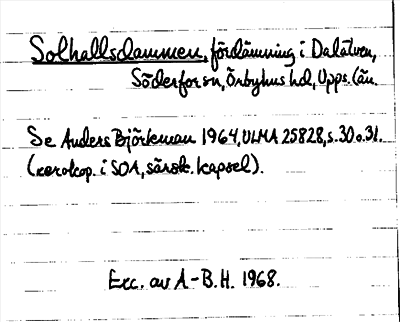 Solhallsdammen, fördämning i Dalälven,
Söderfors sn, Örbyhus hd, Upps. län.
Se Anders Björkman 1964, ULMA 25828, s. 30 o. 31.
(xerokop. i SOA, särsk. kapsel).
Exc. av A-B.H. 1968.